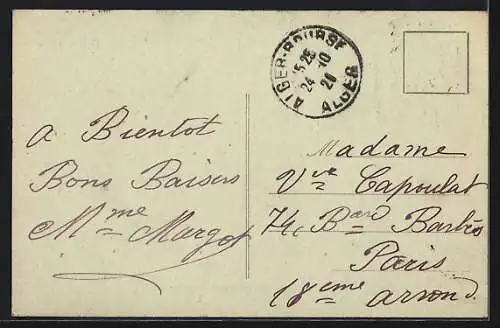 ALGER-BOURSE
15 25
24 - 10
20
ALGER
a Bientot
Bons Baisers
Mme Margot
Madame
Vve Capoulat
74, Bard Barbès
Paris
18eme arrond